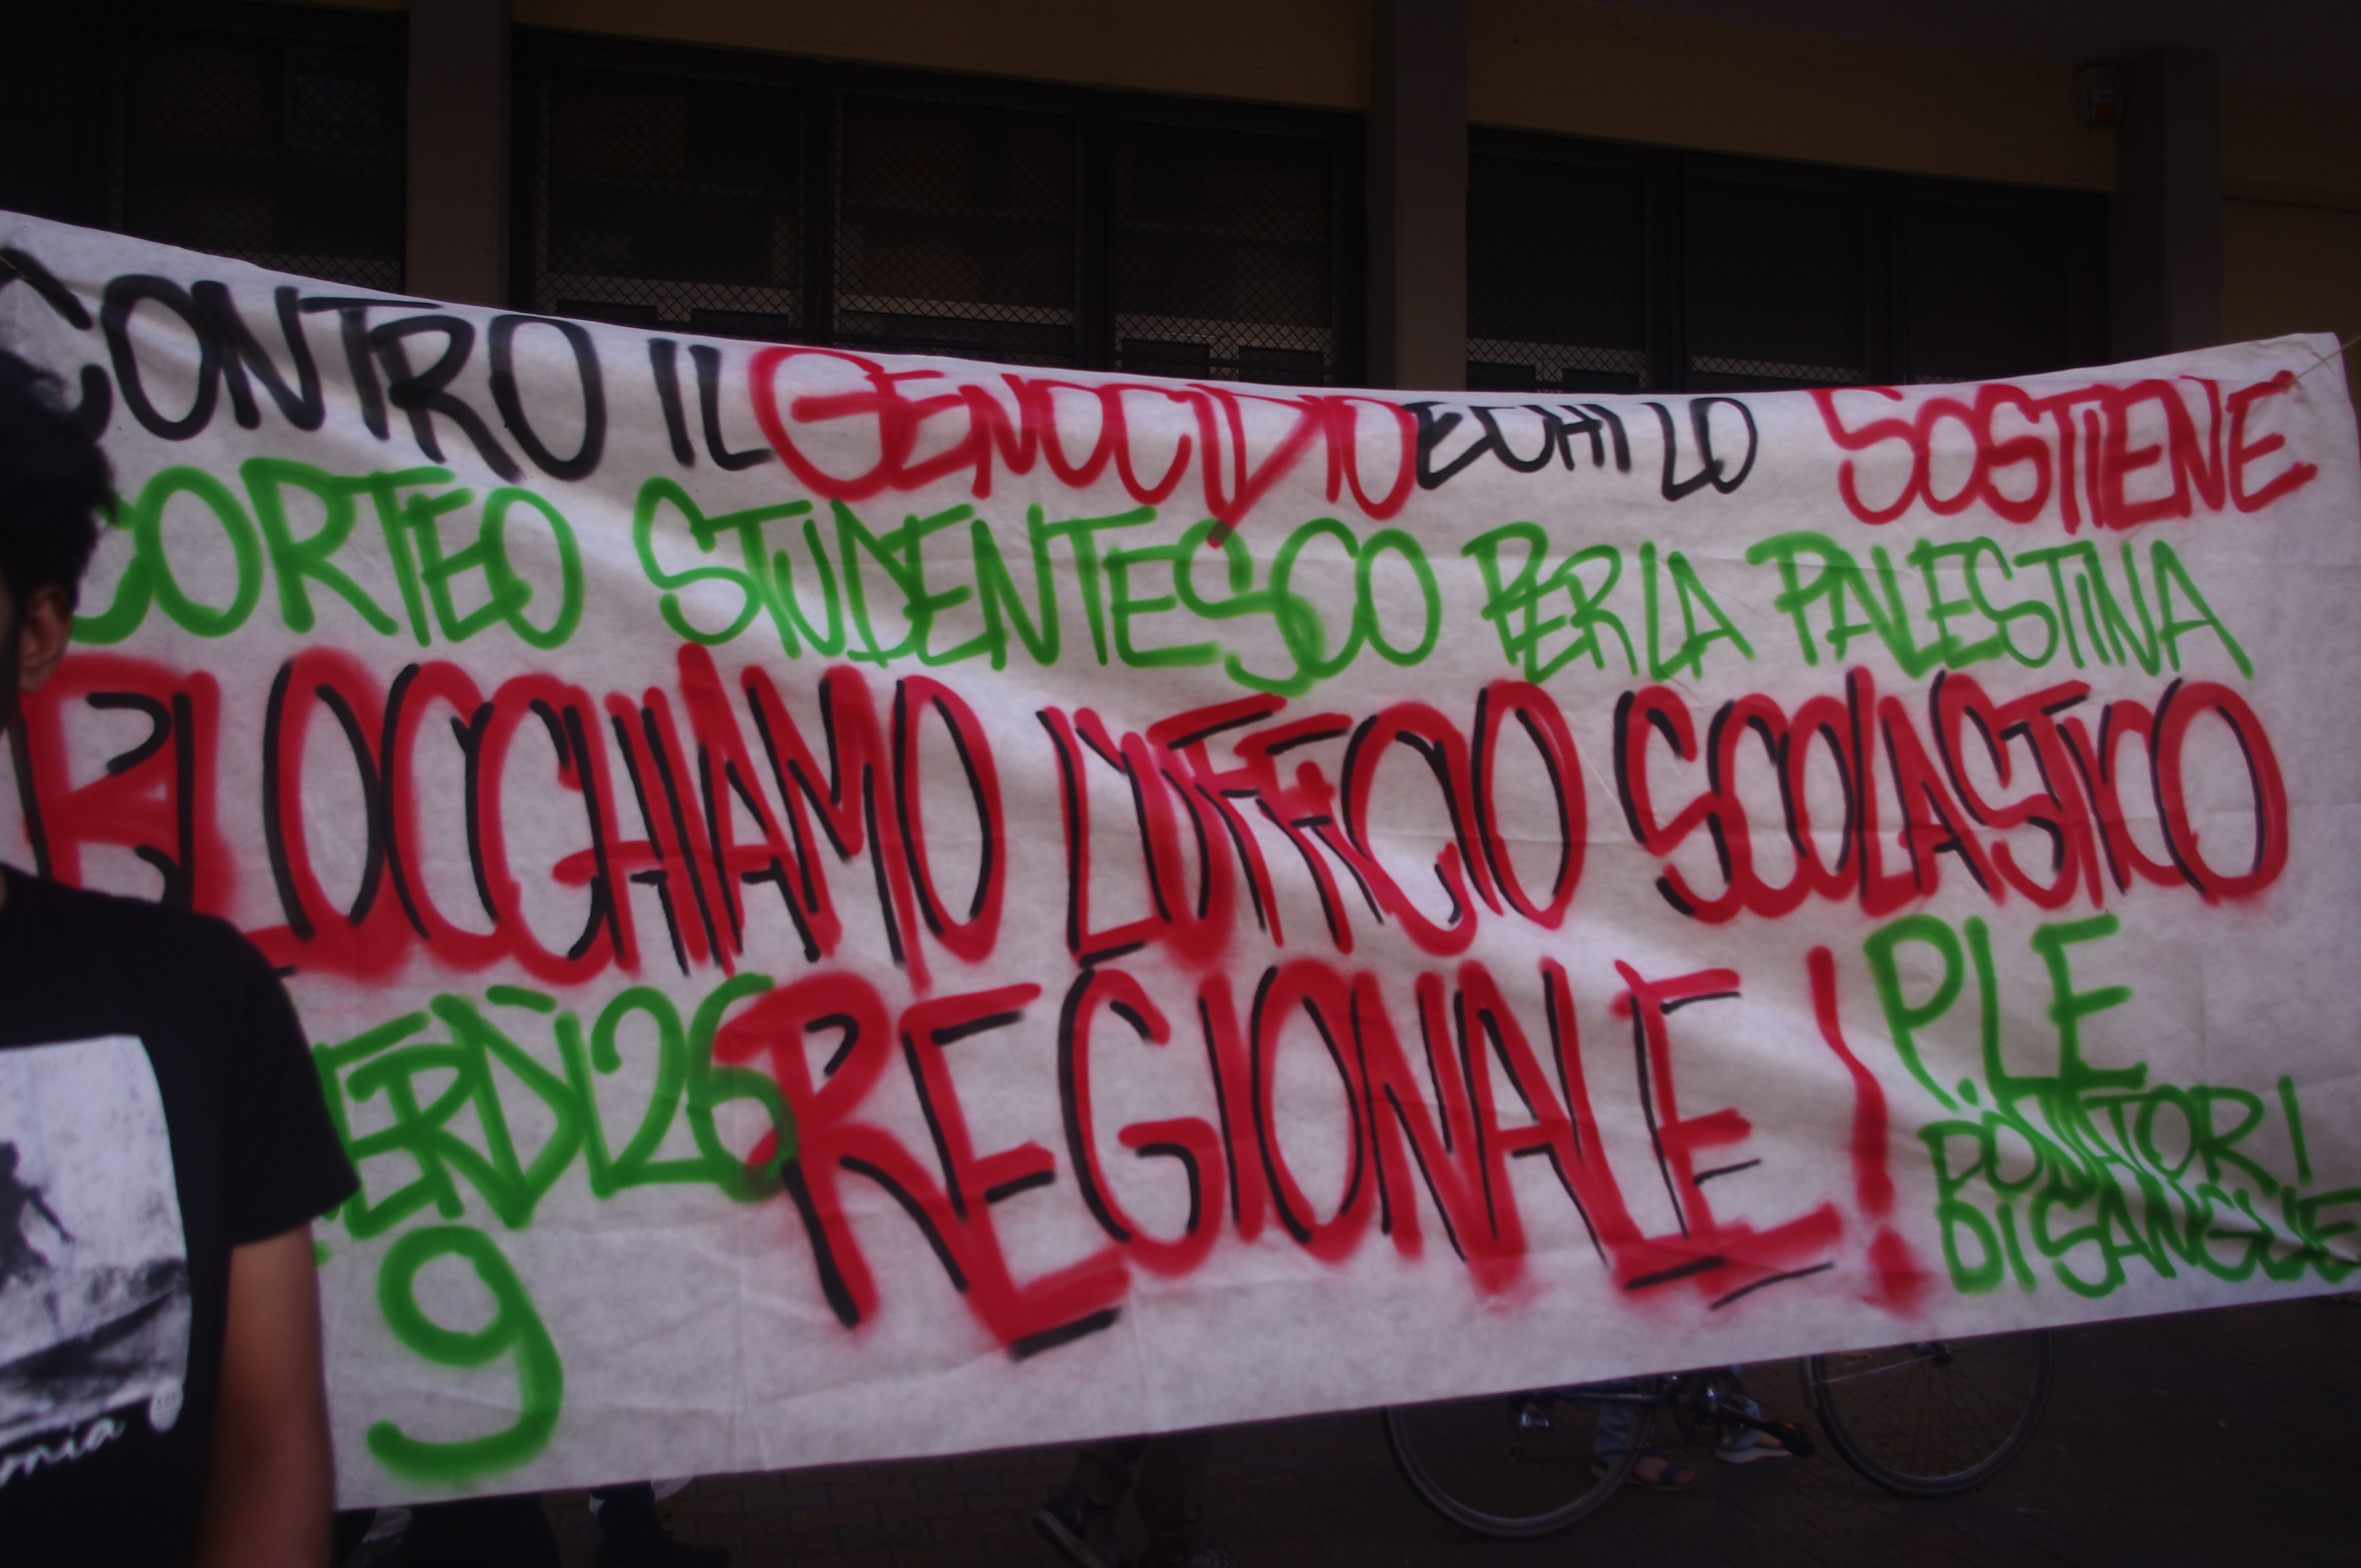 CONTRO IL GENOCIDIO E CHI LO SOSTIENE
CORTEO STUDENTESCO PER LA PALESTINA
BLOCCHIAMO L'UFFICIO SCOLASTICO
ERDÌ 26 REGIONALE!
9
P.LE
DONATORI
DI SANGUE
rnia